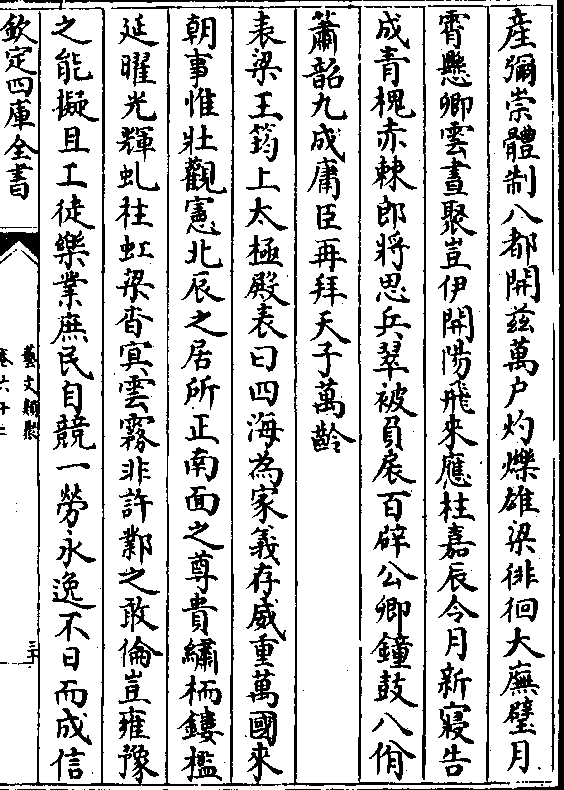 産彌崇體制八都開茲萬户灼爍雄梁徘徊大廡璧月
霄懸卿雲晝聚豈伊開陽飛來應柱嘉辰今月新寝告
成青槐赤棘郎將思兵翠被負扆百辟公卿鐘鼓八佾
蕭韶九成庸臣再拜天子萬齡
表梁王筠上太極殿表曰四海為家義存威重萬國來
朝事惟壯觀憲北辰之居所正南面之尊貴繡栭鏤檻
延曜光輝虬柱虹梁杳㝠雲霧非許鄴之敢倫豈雍豫
之能擬且工徒樂業庶民自競一勞永逸不日而成信
欽定四庫全書
藝文類聚
卷六十二
三十